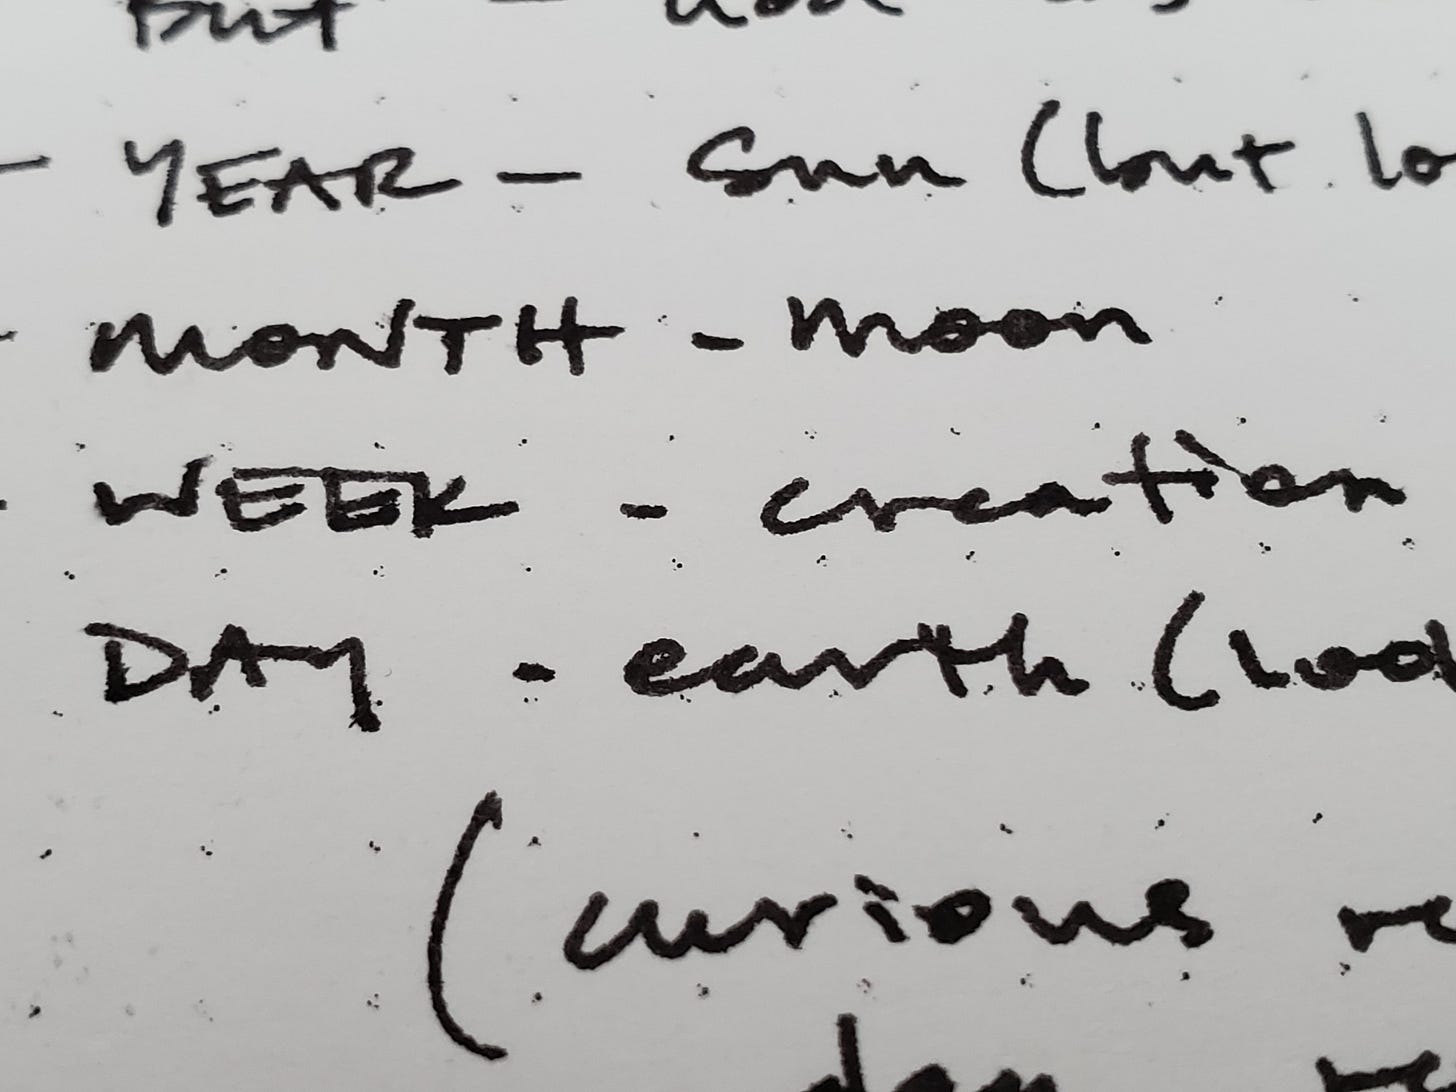 But -
- YEAR - Sun (but lo
- MONTH - moon
- WEEK - creation
DAY - earth (
(curious re
day re